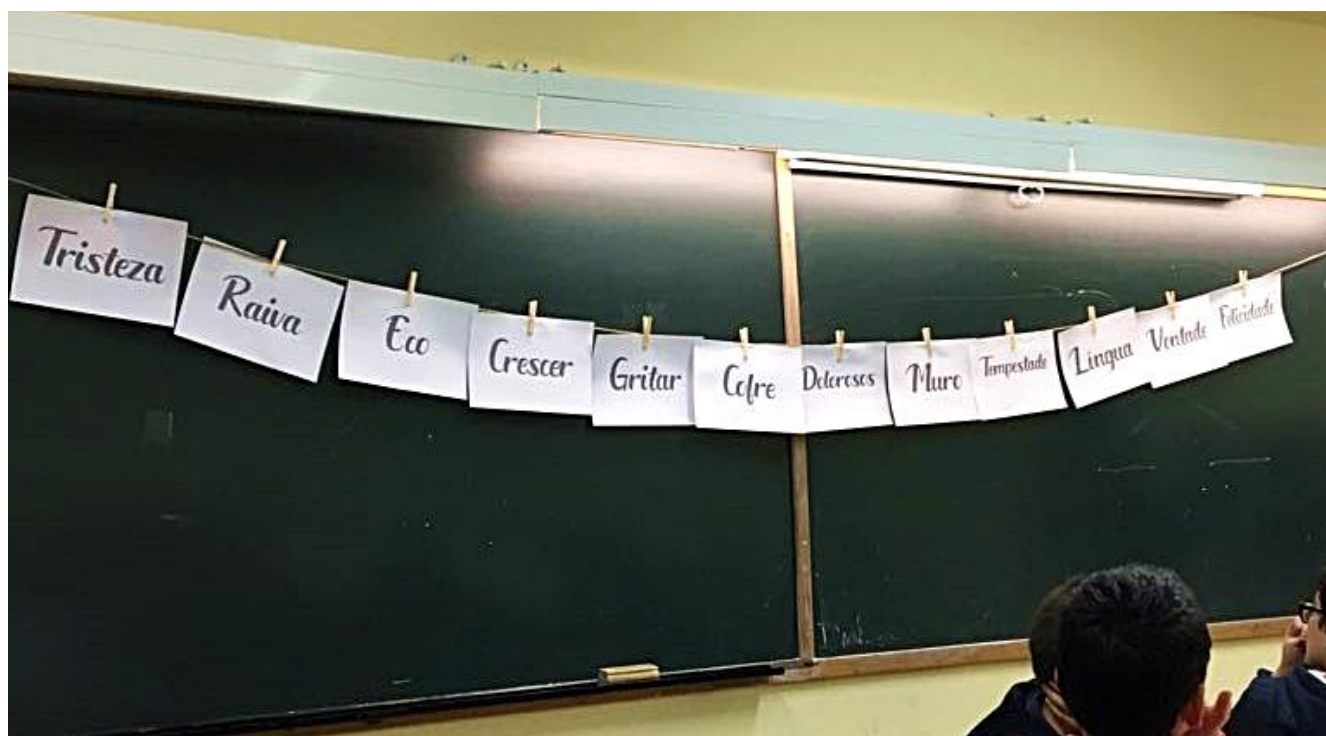 Tristeza
Raiva
Eco
Crescer
Gritar
Cofre
Dolorosos
Muro
Tempestade
Língua
Vontade
Felicidade